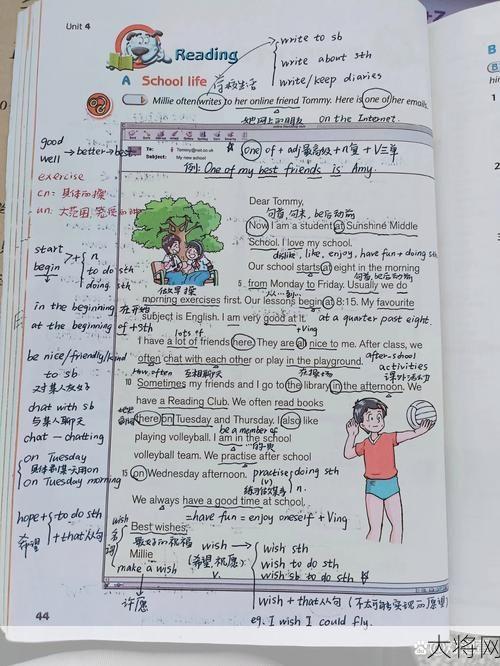 Unit 4
Reading
write to sb
write about sth
write/keep diaries
A School life
学校生活
Millie often writes to her online friend Tommy. Here is one of her emails.
她网上的朋友
on the Internet.
To: Tommy@net.co.uk
Subject: My new school
one of + adj最高级 + n复 + V三单
例: One of my best friends is Amy.
good
well → better → best
exercise
cn: 具体的操
un:
start
begin + n
to do sth
doing sth
in the beginning 在开始
at the beginning of + sth
be nice/friendly/kind
to sb
对某人友好
chat with sb
与某人聊天
chat — chatting
on Tuesday
on Tuesday morning
hope + to do sth
+ that从句
希望
Dear Tommy,
句首, 句末, be后动前
Now I am a student at Sunshine Middle
School. I love my school.
dislike, like, enjoy, have fun + doing sth
Our school starts at eight in the morning
句首, be后动前
5 from Monday to Friday. Usually we do
做早操
从…到…
morning exercises first. Our lessons begin at 8:15. My favourite
subject is English. I am very good at it.
at a quarter past eight.
+Ving
lots of
I have a lot of friends here. They are all nice to me. After class, we
often chat with each other or play in the playground.
after-school
activities
课外活动
How often
互相聊天
在操场
10 Sometimes my friends and I go to the library in the afternoon. We
have a Reading Club. We often read books
here on Tuesday and Thursday. I also like
be a member of
playing volleyball. I am in the school
…的成员
volleyball team. We practise after school
15 on Wednesday afternoon.
practise doing sth
(v)
n.
We always have a good time at school.
= have fun = enjoy oneself + Ving
Best wishes,
最好的祝福
Millie
wish
名词
make a wish
许愿
wish →
(希望, 祝愿)
v.
wish sth
wish to do sth
wish sb to do sth
wish + that从句 (不太可能实现的愿望)
eg. I wish I could fly.
44
大将网